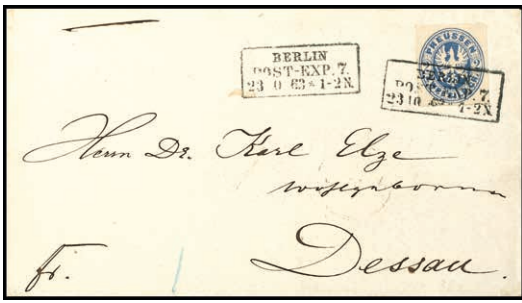 BERLIN
POST-EXP. 7.
23 10 63 * 1-2 N.
PREUSSEN
BERLIN
POST 7.
23 10 63 * 1-2 N
Herrn Dr. Karl Elze
wohlgeboren
Dessau.
fr.